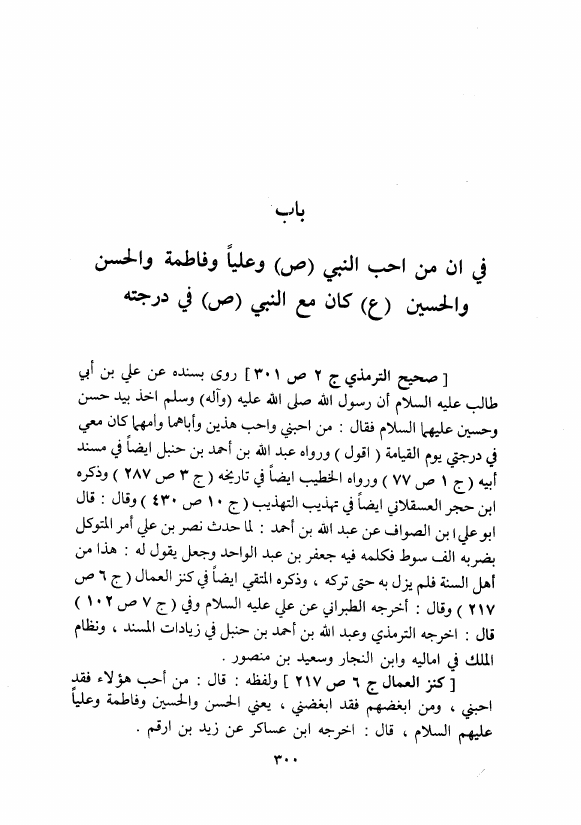 باب
في ان من احب النبي (ص) وعلياً وفاطمة والحسن
والحسين (ع) كان مع النبي (ص) في درجته
[ صحيح الترمذي ج ٢ ص ٣٠١ ] روى بسنده عن علي بن أبي
طالب عليه السلام أن رسول الله صلى الله عليه (وآله) وسلم اخذ بيد حسن
وحسين عليهما السلام فقال : من احبني واحب هذين وأباهما وأمهما كان معي
في درجتي يوم القيامة ( اقول ) ورواه عبد الله بن أحمد بن حنبل ايضاً في مسند
أبيه ( ج ١ ص ٧٧ ) ورواه الخطيب ايضاً في تاريخه ( ج ٣ ص ٢٨٧ ) وذكره
ابن حجر العسقلاني ايضاً في تهذيب التهذيب ( ج ١٠ ص ٤٣٠ ) وقال : قال
ابو علي ابن الصواف عن عبد الله بن أحمد : لما حدث نصر بن علي أمر المتوكل
بضربه الف سوط فكلمه فيه جعفر بن عبد الواحد وجعل يقول له : هذا من
أهل السنة فلم يزل به حتى تركه ، وذكره المتقي ايضاً في كنز العمال ( ج ٦ ص
٢١٧ ) وقال : أخرجه الطبراني عن علي عليه السلام وفي ( ج ٧ ص ١٠٢ )
قال : اخرجه الترمذي وعبد الله بن أحمد بن حنبل في زيادات المسند ، ونظام
الملك في اماليه وابن النجار وسعيد بن منصور .
[ كنز العمال ج ٦ ص ٢١٧ ] ولفظه : قال : من أحب هؤلاء فقد
احبني ، ومن ابغضهم فقد ابغضني ، يعني الحسن والحسين وفاطمة وعلياً
عليهم السلام ، قال : اخرجه ابن عساكر عن زيد بن ارقم .
٣٠٠